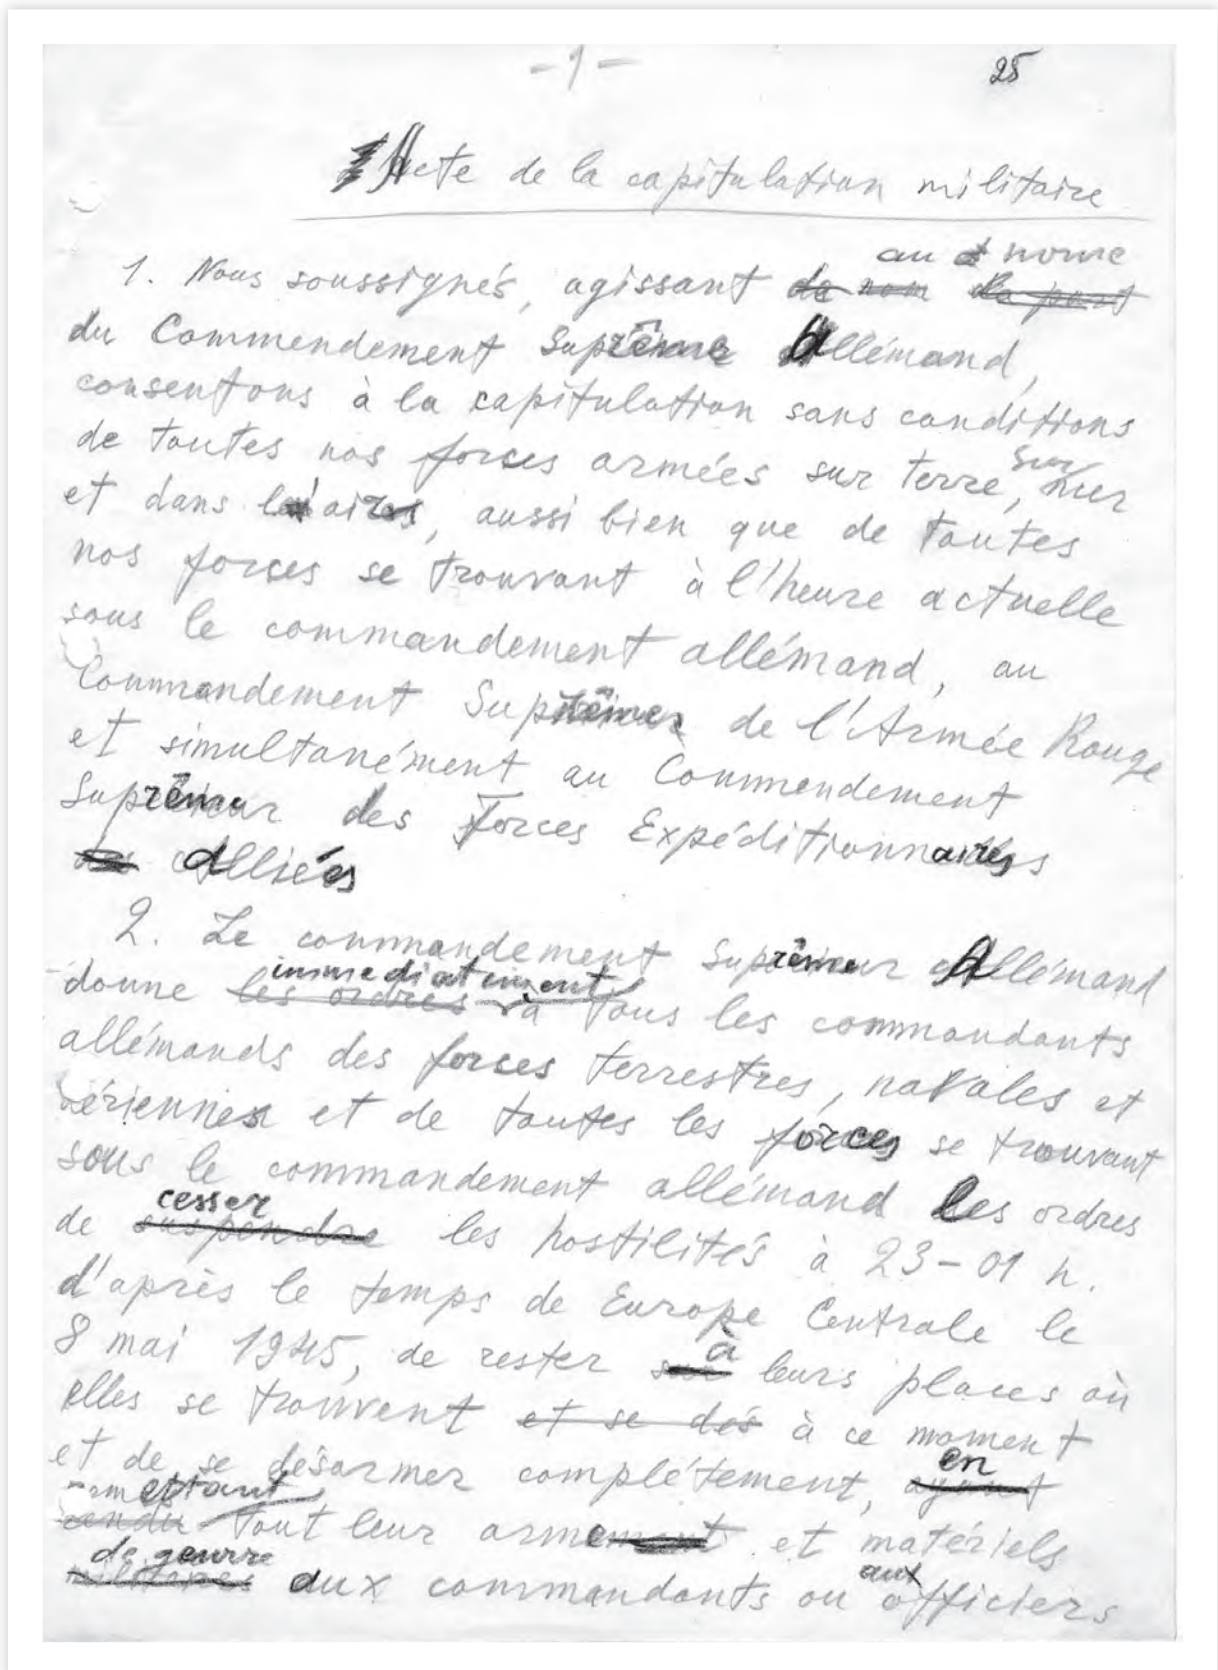 - 1 -
25
Acte de la capitulation militaire
au nome
1. Nous soussignés, agissant de nom de part
du Commendement Suprême Allémand,
consentons à la capitulation sans conditions
de toutes nos forces armées sur terre, sur mer
et dans l'air, aussi bien que de toutes
nos forces se trouvant à l'heure actuelle
sous le commandement allémand, au
Commandement Suprême de l'Armée Rouge
et simultanément au Commendement
Suprême des Forces Expéditionnaires
Alliées
2. Le commandement Suprême Allémand
immediatement
donne les ordres à tous les commandants
allémands des forces terrestres, navales et
aériennes et de toutes les forces se trouvant
sous le commandement allémand les ordres
cesser
de suspendre les hostilités à 23-01 h.
d'après le temps de Europe Centrale le
8 mai 1945, de rester à leurs places où
elles se trouvent et se dés à ce moment
et de se désarmer complétement, en ayant
tout leur arme et matériels
de geurre
militaires aux commandants ou aux officiers